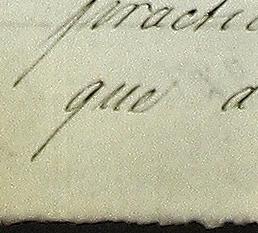 practic
que a